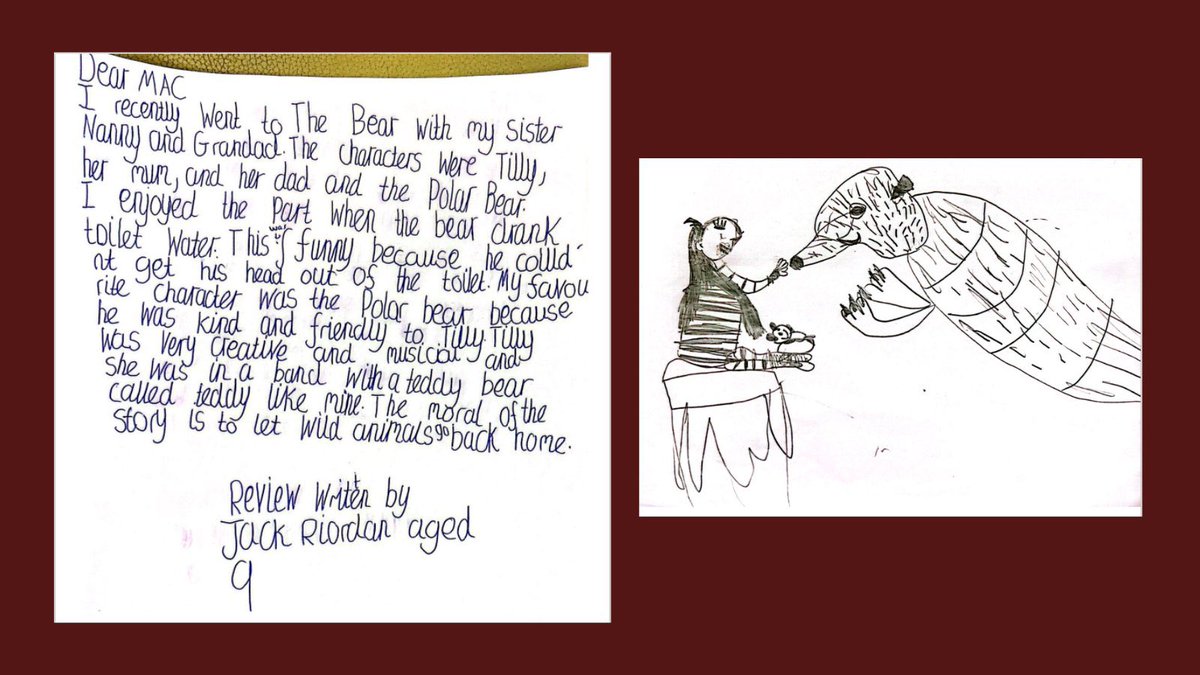 Dear MAC
I recently Went to The Bear with my sister
Nanny and Grandad. The characters were Tilly,
her mum, and her dad and the Polar Bear.
I enjoyed the Part when the bear drank
toilet Water. This was funny because he could
nt get his head out of the toilet. My favou
rite character was the Polar bear because
he was kind and friendly to Tilly. Tilly
was very creative and musicial and
she was in a band with a teddy bear
called teddy like mine. The moral of the
story is to let wild animals go back home.
Review Written by
Jack Riordan aged
9